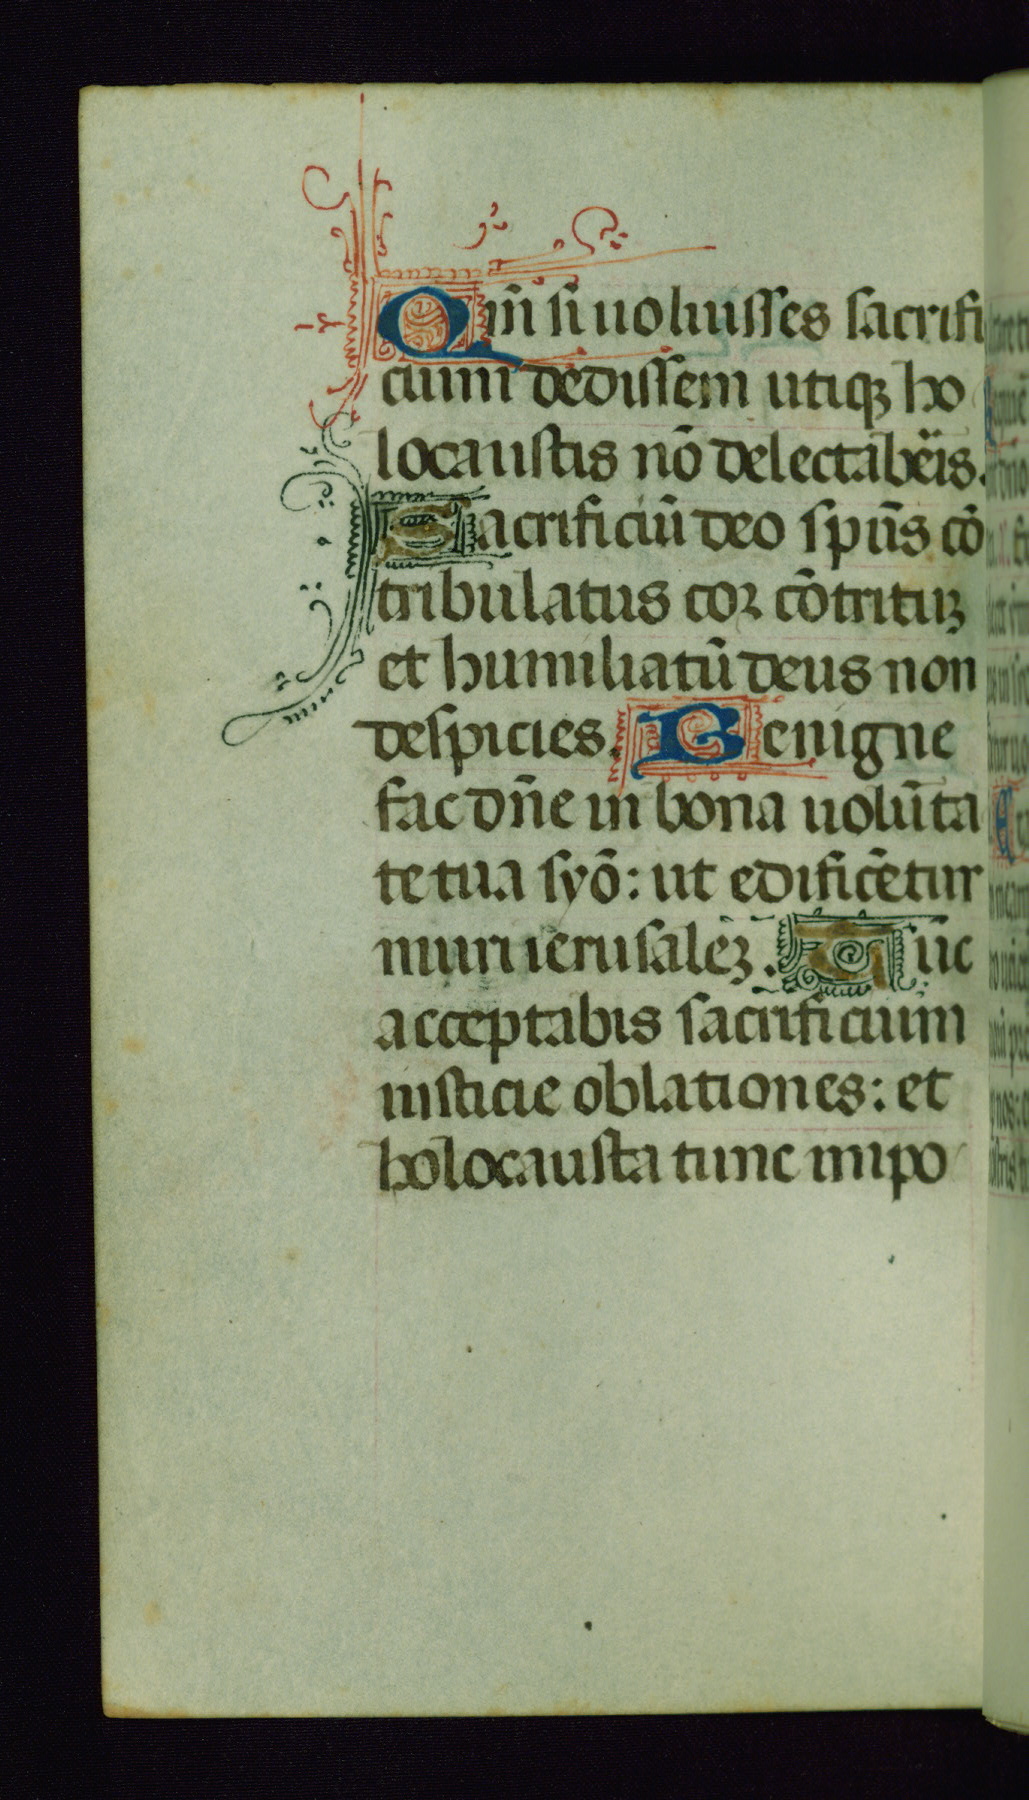 Qm̄ si uoluisses sacrifi
cium dedissem utiqꝫ ho
locaustis nō delectab̄eis.
Sacrificiū deo spūs cō
tribulatus cor cōtrituꝫ
et humiliatū deus non
despicies. Benigne
fac dn̄e in bona uolūta
te tua syō: ut edificētur
muri ierusalēꝫ. Tūc
acceptabis sacrificium
iusticie oblationes: et
holocausta tunc impo